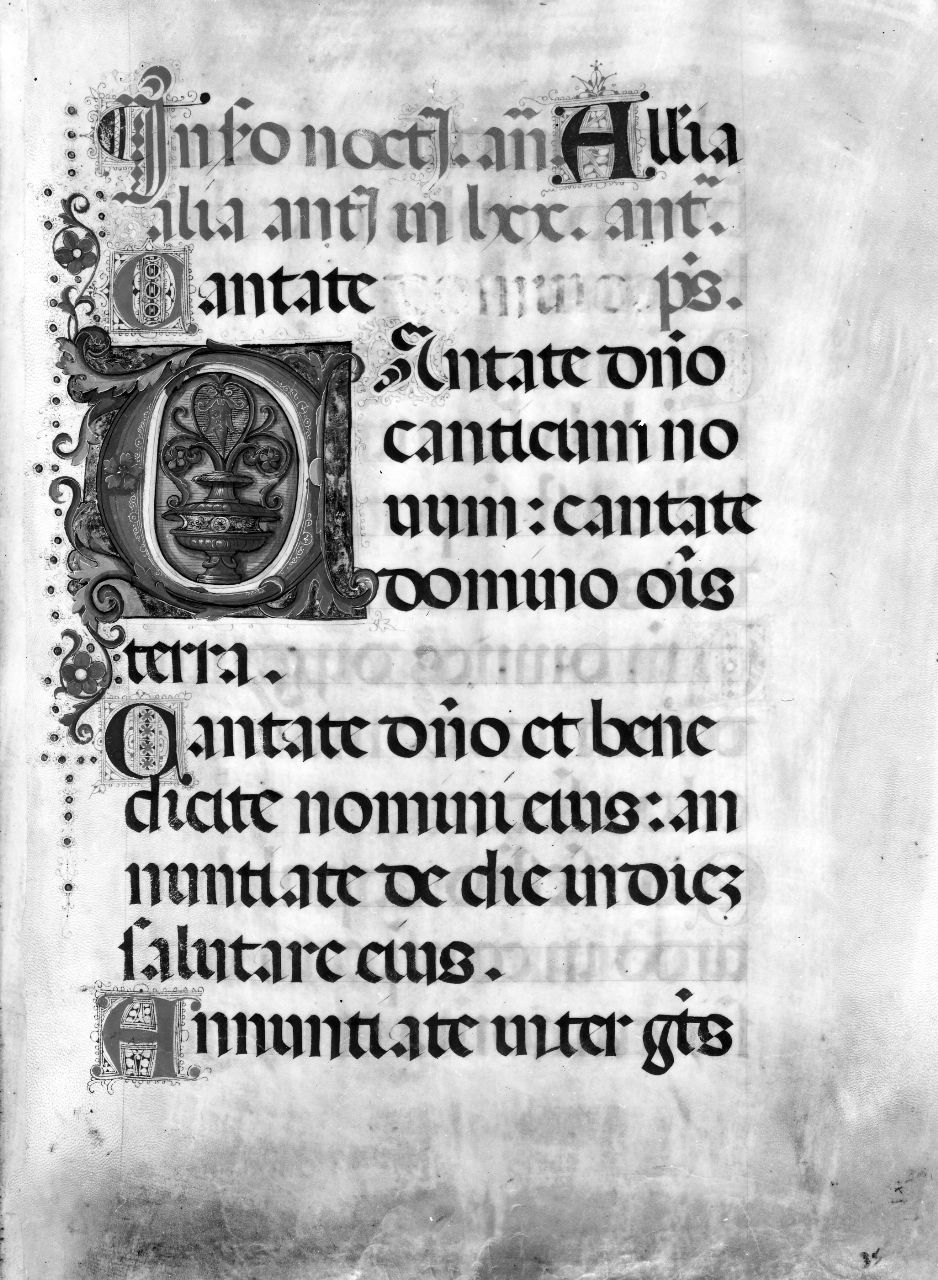 In s̃o noct̃. añ. All'ia
alia ant̃ in lxx. ant̃.
Cantate p̃s.
CAntate dño
canticum no
uum: cantate
domino oĩs
terra.
Cantate dño et bene
dicite nomini eius: an
nuntiate de die in dieʒ
salutare eius.
Annuntiate inter gẽts